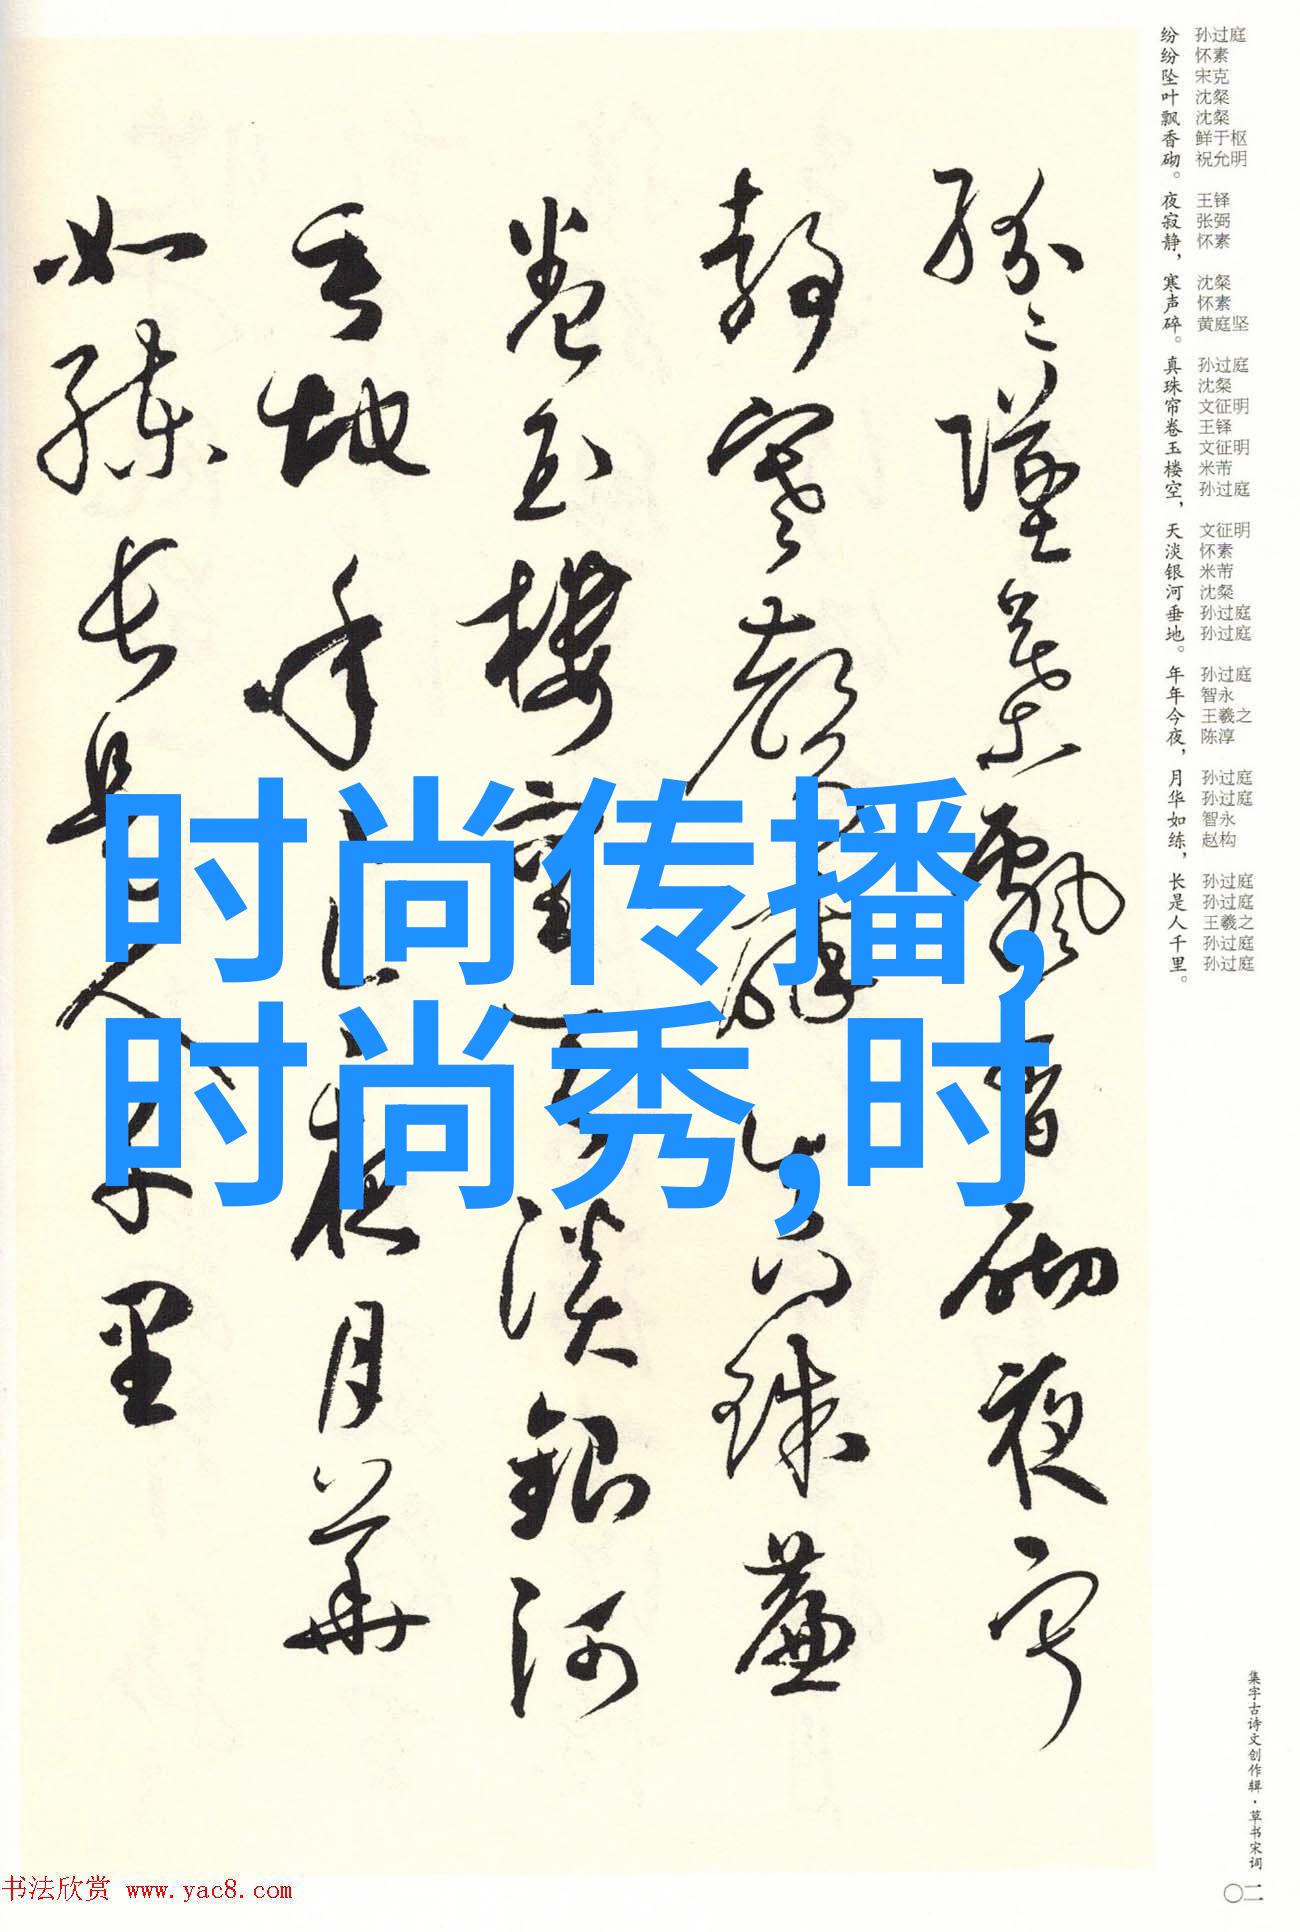 纷纷坠叶飘香砌。夜寂静，寒声碎。真珠帘卷玉楼空，天淡银河垂地。年年今夜，月华如练，长是人千里。
孙过庭
怀素
宋克
沈粲
沈粲
鲜于枢
祝允明
王铎
张弼
怀素
沈粲
怀素
黄庭坚
孙过庭
沈粲
文征明
王铎
文征明
米芾
孙过庭
文征明
怀素
米芾
沈粲
孙过庭
孙过庭
孙过庭
智永
王羲之
陈淳
孙过庭
孙过庭
智永
赵构
孙过庭
孙过庭
王羲之
孙过庭
孙过庭
纷纷墜葉飘香砌夜寂
静寒聲碎真珠簾
卷玉樓空天淡銀河
垂地年年今夜月華
如練長是人千里
时尚传播,
时尚秀,时
集字古诗文创作辑·草书宋词
〇二
书法欣赏 www.yac8.com